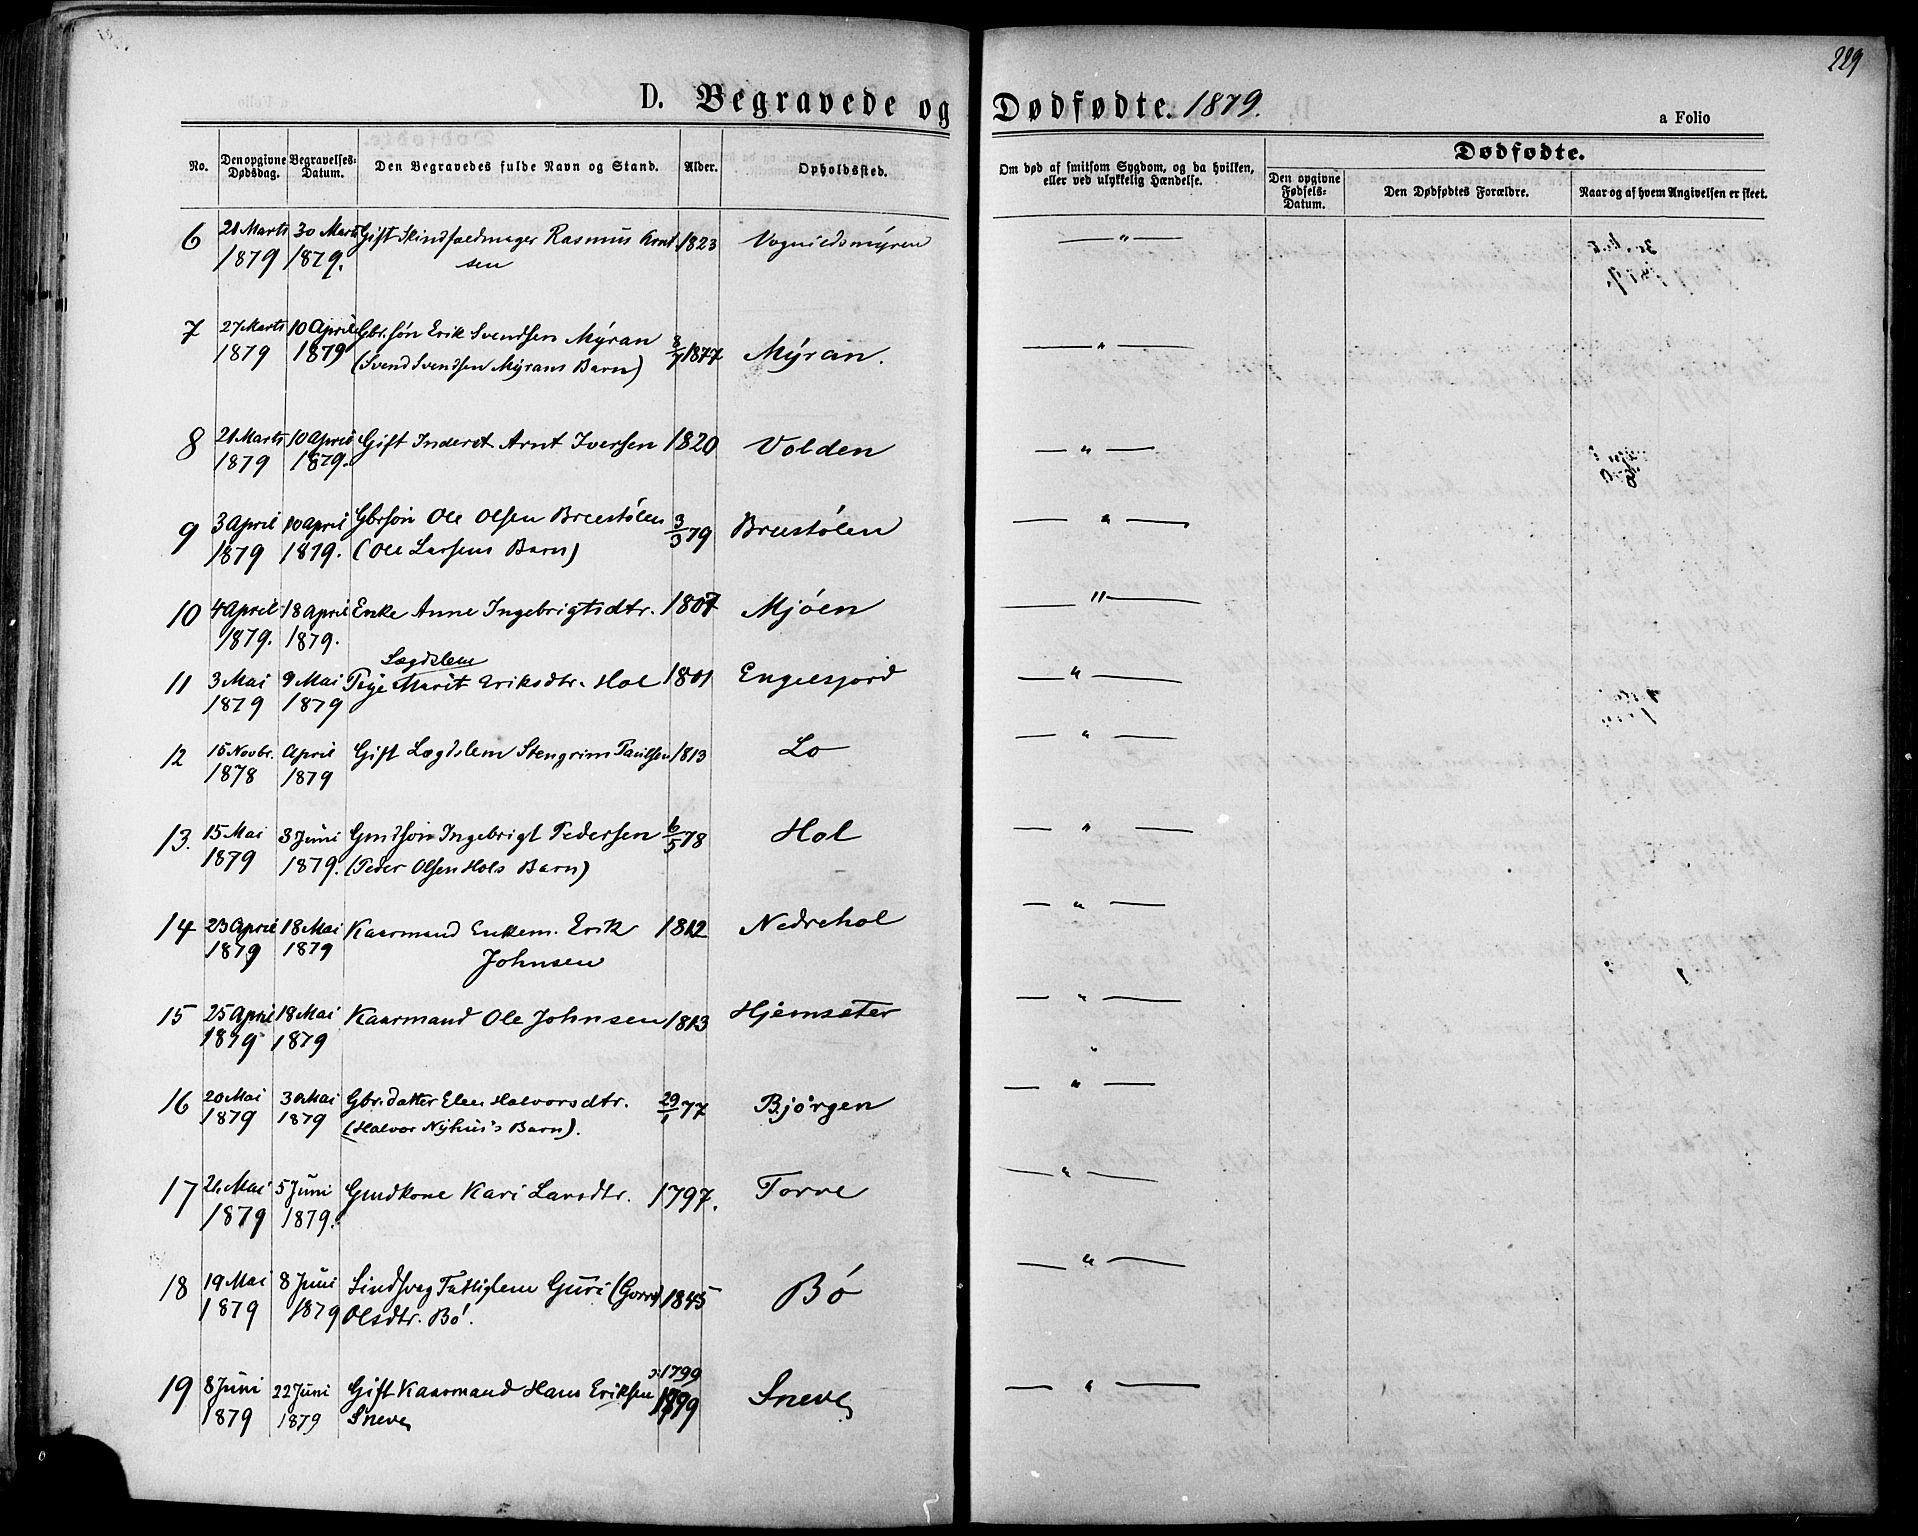 229
D. Begravede og Dødfødte. 1879.
a Folio
No.
Den opgivne Dødsdag.
Begravelses-Datum.
Den Begravedes fulde Navn og Stand.
Alder.
Opholdssted.
Om død af smitsom Sygdom, og da hvilken, eller ved ulykkelig Hændelse.
Dødfødte.
Den opgivne Fødsels-Datum.
Den Dødfødtes Forældre.
Naar og af hvem Angivelsen er skeet.
6 21 Marts 30 Marts Gift Skindfældmager Rasmus Arnt 1823 Vognildsmyren — " —
1879 1879. sen
7 27 Marts 10 April Gbr.søn Erik Svendsen Mÿran 8/7 1877 Mÿran. — " —
1879 1879 (Svend Svendsen Mÿrans Barn)
8 21 Marts 10 April Gift Inderst Arnt Iversen 1820 Volden — " —
1879 1879.
9 3 April 10 April Gbrsøn Ole Olsen Breestølen 3/3 79 Breestølen — " —
1879 1879. (Ole Larsens Barn)
10 4 April 18 April Enke Anne Ingebrigtsdtr. 1807 Mjøen — " —
1879. 1879.
Lægdslem
11 3 Mai 9 Mai Pige Marit Eriksdtr. Hol 1801 Engelsjord — " —
1879 1879
12 15 Novbr. April Gift Lægdslem Stengrim Paulsen 1813 Lo — " —
1878 1879
13. 15 Mai 3 Juni Gmdsøn Ingebrigt Pedersen 6/5 78 Hol — " —
1879 1879. (Peder Olsen Hols Barn)
14 23 April 18 Mai Kaarmand Enkem. Erik 1812 Nedrehol — " —
1879 1879 Johnsen
15 25 April 18 Mai Kaarmand Ole Johnsen 1813 Hjemsæter — " —
1879 1879
16 20 Mai 30 Mai Gbr.datter Elen Halvorsdtr. 29/1 77 Bjørgen — " —
1879 1879 (Halvor Nÿhus's Barn).
17 21 Mai 5 Juni Gmdkone Kari Larsdtr. 1797. Torve — " —
1879 1879.
18 19 Mai 8 Juni Sindsvag Fattiglem Guri (Gorra) 1845 Bø — " —
1879 1879 Olsdtr. Bø.
ɔ: 1799
19 8 Juni 22 Juni Gift Kaarmand Hans Eriksen 1799 Sneve — " —
1879 1879 Sneve